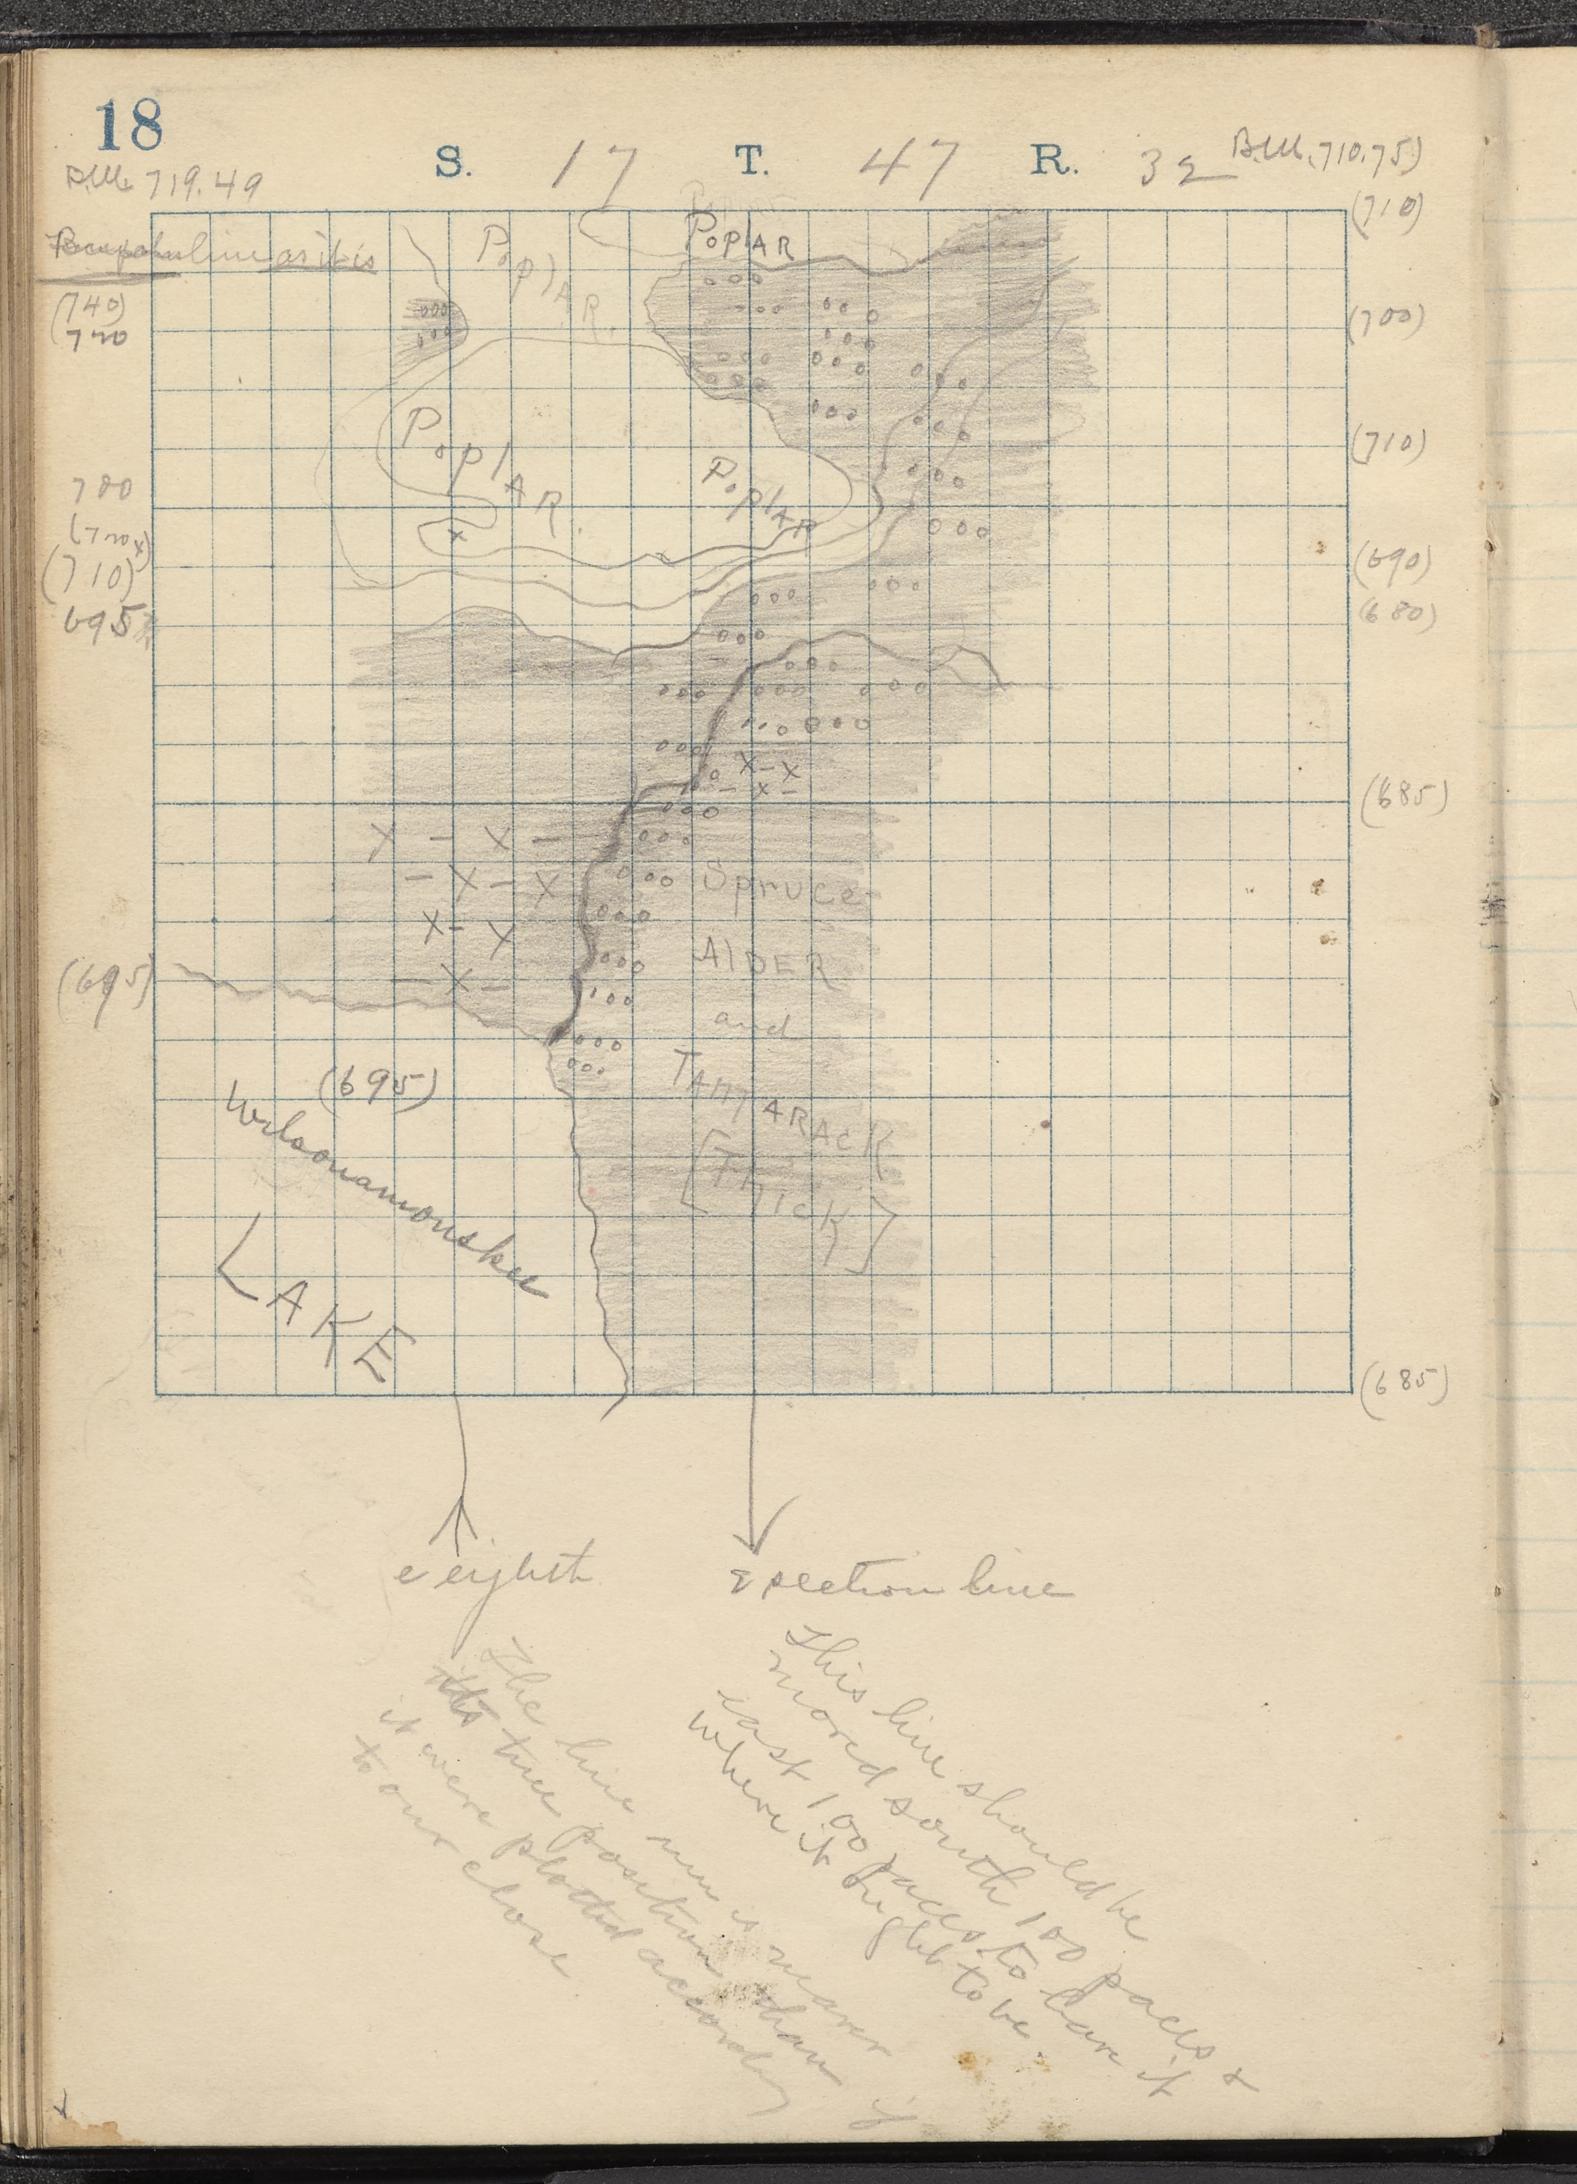 18
S. 17 T. 47 R. 32
B.M. 710.75)
B.M. 719.49
(710)
line as it is
(740)
720
(700)
(710)
700
(710)
695
(690)
(680)
(685)
(695)
(685)
Poplar
PoplAR
PoplAR.
PoplAR.
PoplAR
x
X - X
- X -
X - X -
- X - X
X - X
- X -
Spruce
AlDER
and
TAMARACK
[THICK]
(695)
LAKE
eighth
section line
The line run is nearer
the true position than if
it were plotted according
to our close
This line should be
moved south 100 paces &
east 100 paces to have it
where it ought to be.